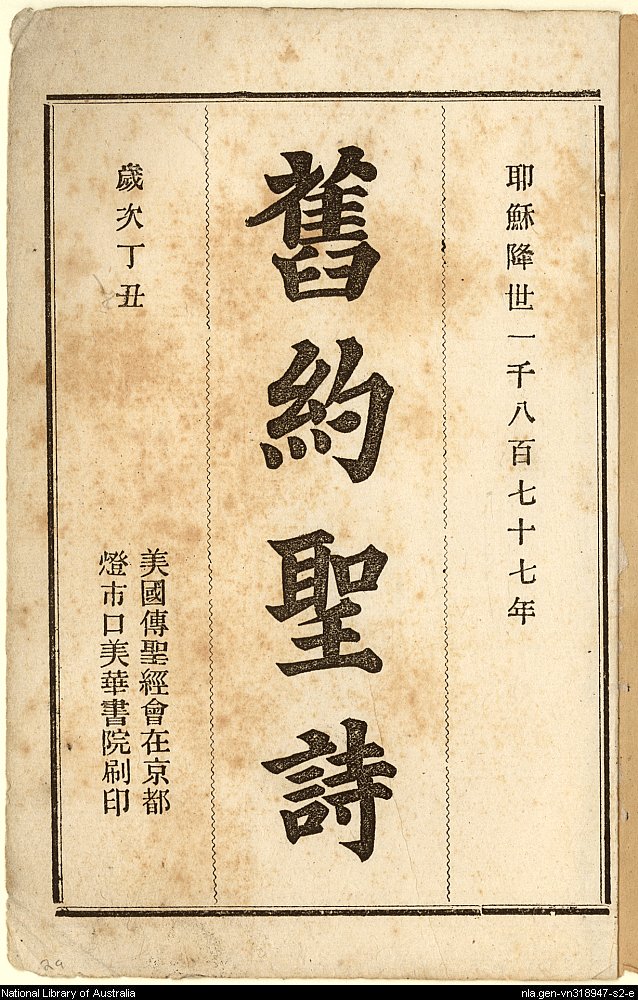 耶穌降世一千八百七十七年
舊約聖詩
歲次丁丑
美國傳聖經會在京都
燈市口美華書院刷印
29
National Library of Australia
nla.gen-vn318947-s2-e